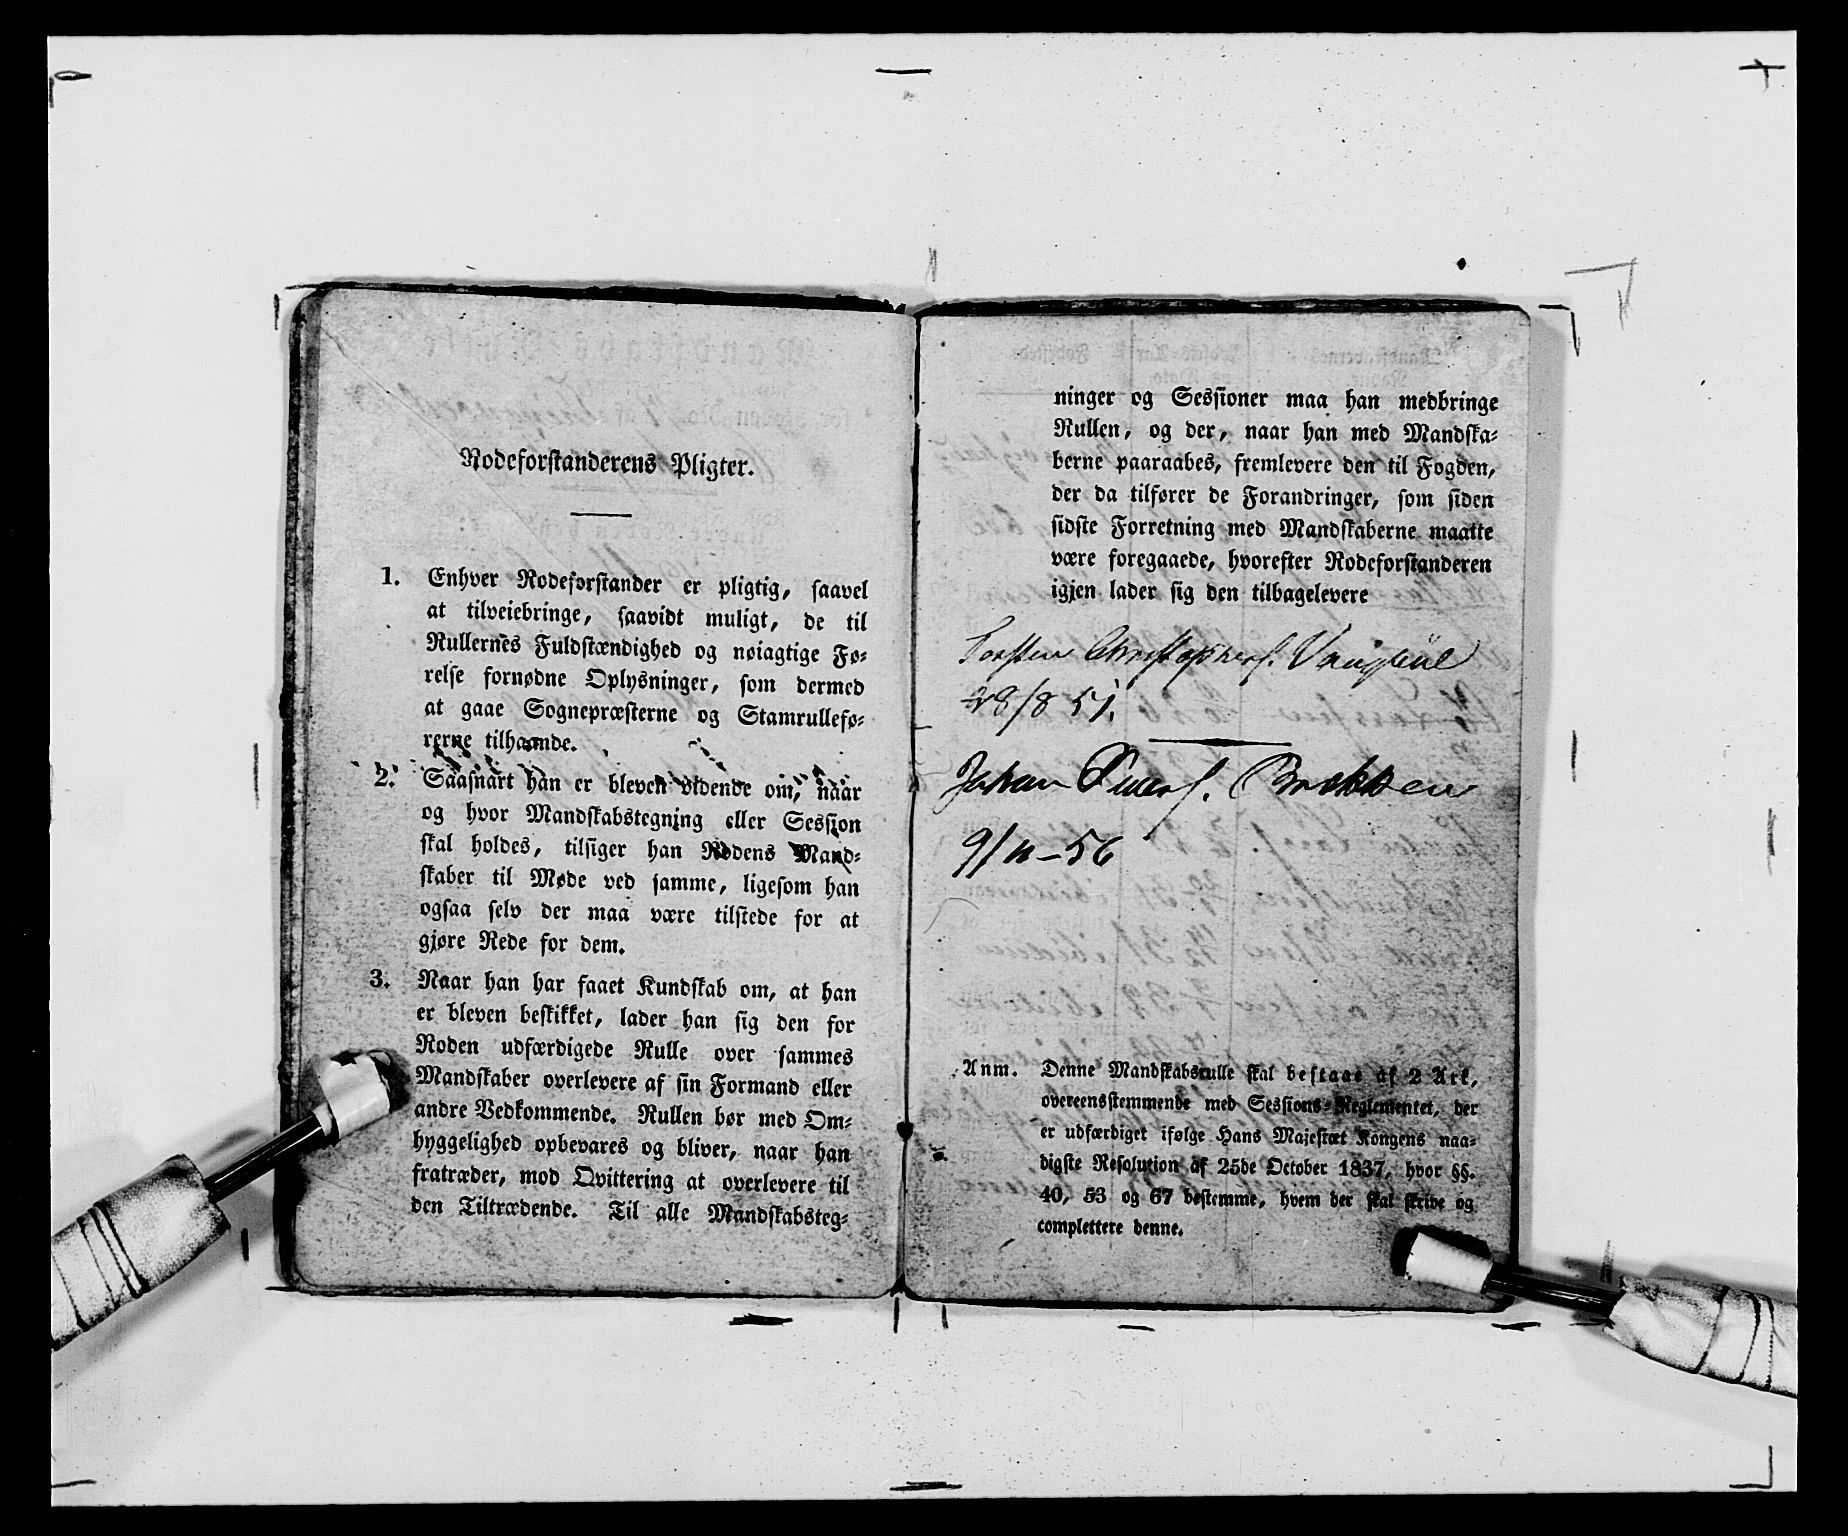 Rodeforstanderens Pligter.
1. Enhver Rodeforstander er pligtig, saavel
at tilveiebringe, saavidt muligt, de til
Rullernes Fuldstændighed og nøiagtige Fø-
relse fornødne Oplysninger, som dermed
at gaae Sognepræsterne og Stamrullefø-
rerne tilhaande.
2. Saasnart han er bleven vidende om, naar
og hvor Mandskabstegning eller Session
skal holdes, tilsiger han Rodens Mand-
skaber til Møde ved samme, ligesom han
ogsaa selv der maa være tilstede for at
gjøre Rede for dem.
3. Naar han har faaet Kundskab om, at han
er bleven beskikket, lader han sig den for
Roden udfærdigede Rulle over sammes
Mandskaber overlevere af sin Formand eller
andre Vedkommende. Rullen bør med Om-
hyggelighed opbevares og bliver, naar han
fratræder, mod Qvittering at overlevere til
den Tiltrædende. Til alle Mandskabsteg-
ninger og Sessioner maa han medbringe
Rullen, og der, naar han med Mandska-
berne paaraabes, fremlevere den til Fogden,
der da tilfører de Forandringer, som siden
sidste Forretning med Mandskaberne maatte
være foregaaede, hvorefter Rodeforstanderen
igjen lader sig den tilbagelevere
Torsten Christophers.
28/8 51.
Johan Brekken
9/11-56
Anm. Denne Mandskabsrulle skal bestaae af 2 Ark,
overeensstemmende med Sessions-Reglementet, der
er udfærdiget ifølge Hans Majestæt Kongens naa-
digste Resolution af 25de October 1837, hvor §§.
40, 53 og 67 bestemme, hvem der skal skrive og
complettere denne.